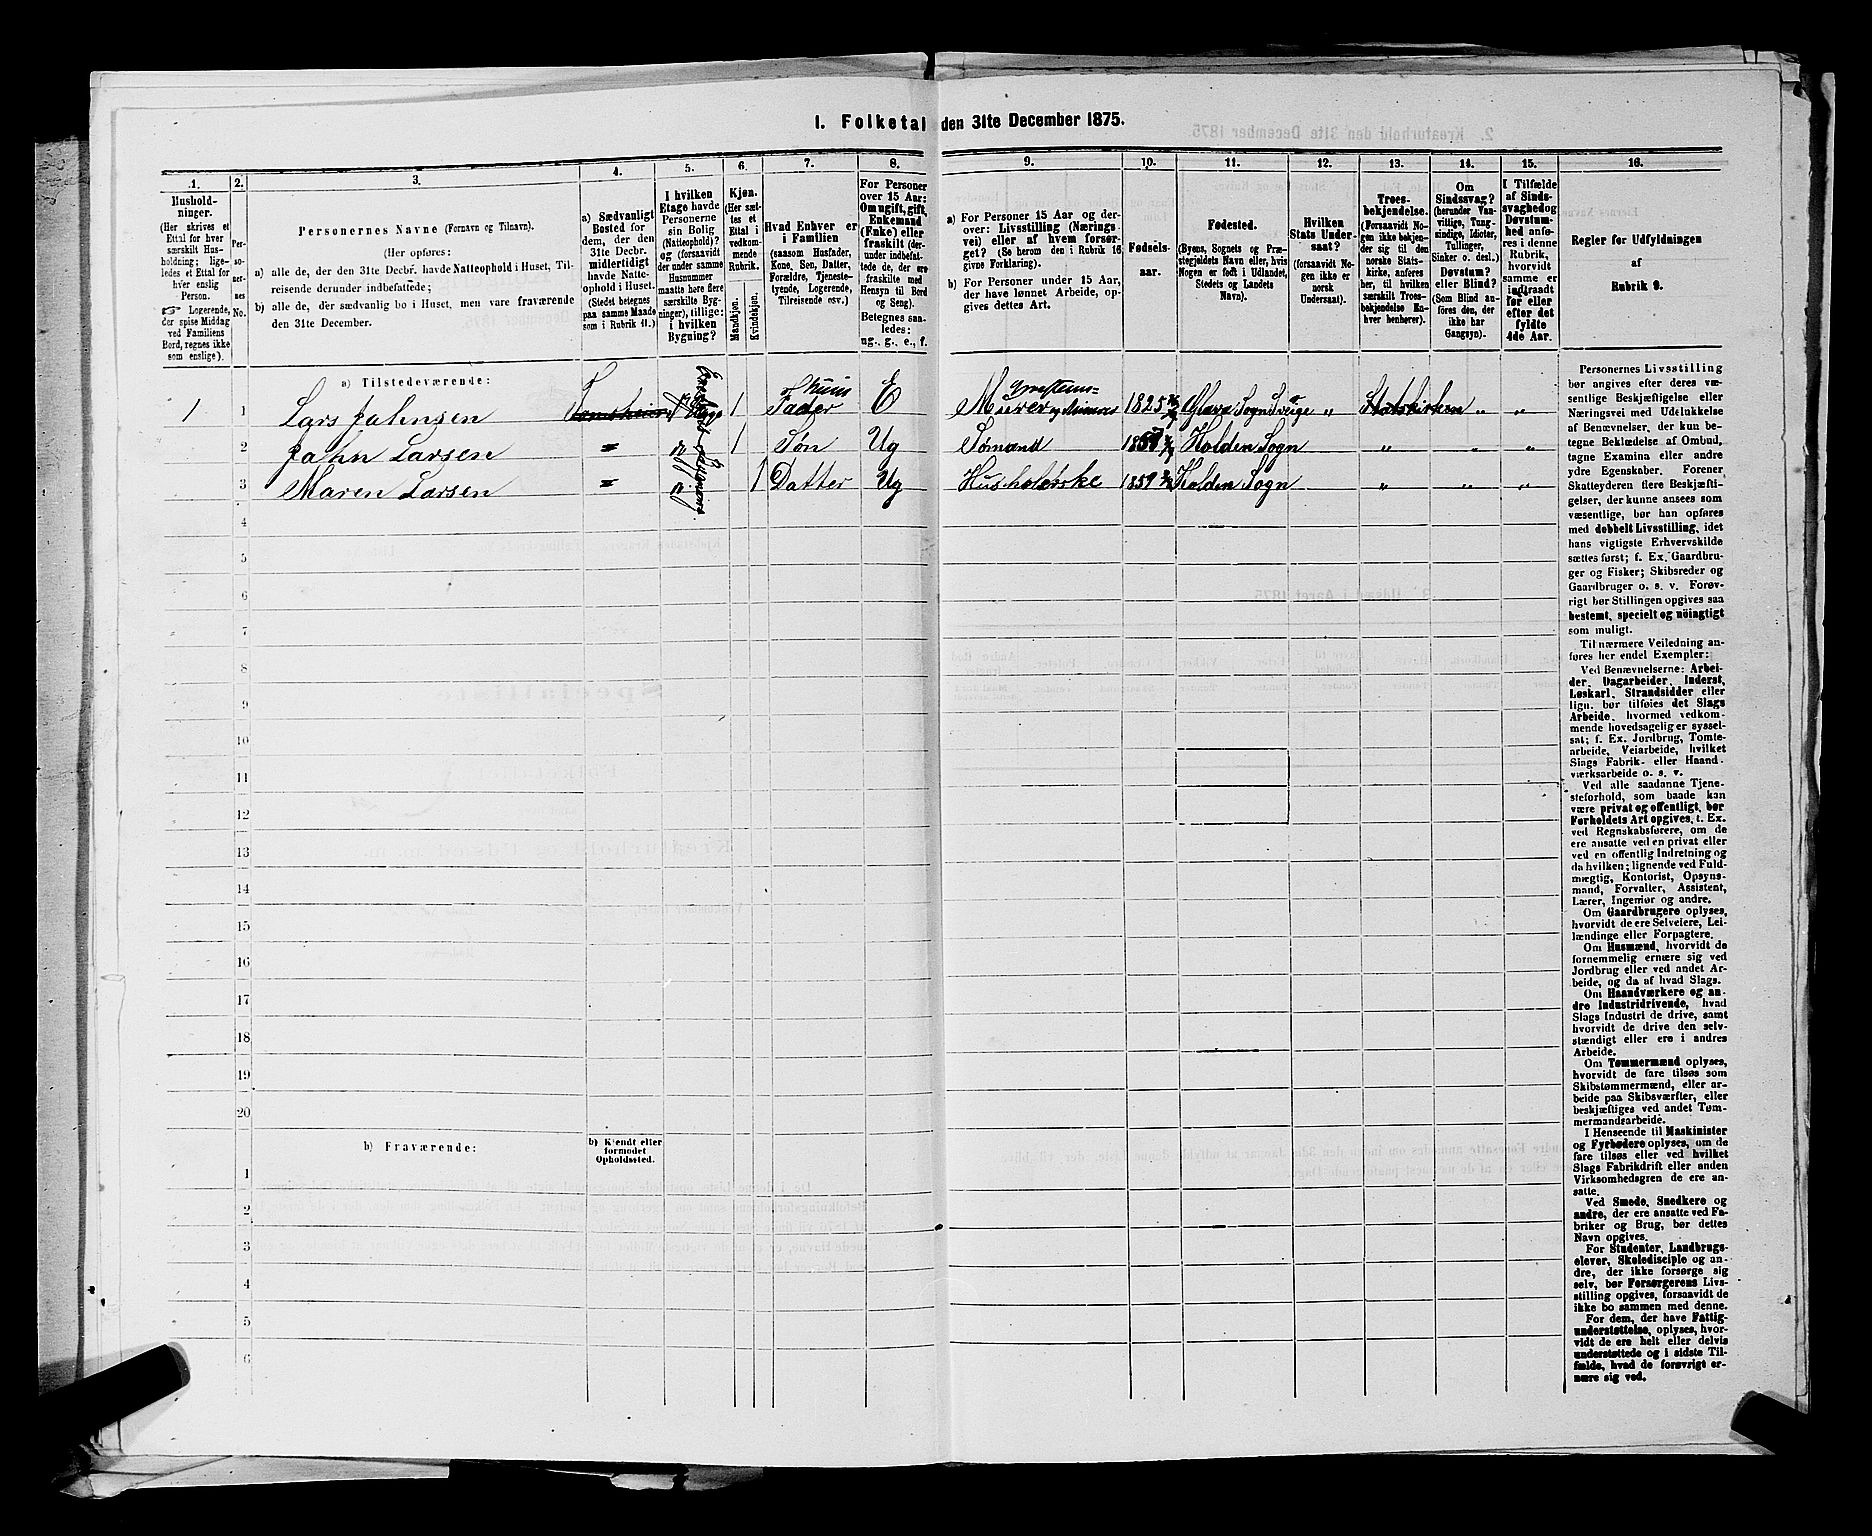 1. Folketal den 31te December 1875.
1.
2.
3.
4.
5.
6.
7.
8.
9.
10.
11.
12.
13.
14.
15.
16.
Hushold-
ninger.
(Her skrives et
Ettal for hver
særskilt Hus-
holdning; lige-
ledes et Ettal for
hver enslig
Person.
☞ Logerende,
der spise Middag
ved Familiens
Bord, regnes ikke
som enslige).
Per-
so-
ner-
nes
No.
Personernes Navne (Fornavn og Tilnavn).
(Her opføres:
a) alle de, der den 31te Decbr. havde Natteophold i Huset, Til-
reisende derunder indbefattede;
b) alle de, der sædvanlig bo i Huset, men vare fraværende
den 31te December.
a) Sædvanligt
Bosted for
dem, der den
31te Decbr.
midlertidigt
havde Natte-
ophold i Huset.
(Stedet betegnes
paa samme Maade
som i Rubrik 11.)
I hvilken
Etage havde
Personerne
sin Bolig
(Natteophold)?
og (forsaavidt
der under samme
Husnummer
maatte høre flere
særskilte Byg-
ninger), tillige:
i hvilken
Bygning?
Kjøn.
(Her sæt-
tes et
Ettal i
vedkom-
mende
Rubrik.
Mandkjøn.
Kvindekjøn.
Hvad Enhver er
i Familien
(saasom Husfader,
Kone, Søn, Datter,
Forældre, Tjeneste-
tyende, Logerende,
Tilreisende osv.)
For Personer
over 15 Aar:
Om ugift, gift,
Enkemand
(Enke) eller
fraskilt (der-
under indbefat-
tede de, der ere
fraskilte med
Hensyn til Bord
og Seng).
Betegnes saa-
ledes:
ug., g., e., f.
a) For Personer 15 Aar og der-
over: Livsstilling (Nærings-
vei) eller af hvem forsør-
get? (Se herom den i Rubrik 16
givne Forklaring).
b) For Personer under 15 Aar,
der have lønnet Arbeide, op-
gives dettes Art.
Fødsels-
aar.
Fødested.
(Byens, Sognets og Præ-
stegjeldets Navn eller, hvis
Nogen er født i Udlandet,
Stedets og Landets
Navn).
Hvilken
Stats Under-
saat?
(forsaavidt No-
gen ikke er
norsk
Undersaat).
Troes-
bekjendelse.
(Forsaavidt No-
gen ikke bekjen-
der sig til den
norske Stats-
kirke, anføres
her, til hvilken
særskilt Troes-
bekjendelse En-
hver henhører).
Om
Sindssvag?
(herunder Van-
vittige, Tung-
sindige, Idioter,
Tullinger,
Sinker o. desl.)
Døvstum?
eller Blind?
(Som Blind an-
føres den, der
ikke har
Gangsyn).
I Tilfælde
af Sinds-
svaghed og
Døvstum-
hed anfø-
res i denne
Rubrik,
hvorvidt
samme er
indtraadt
før eller
efter det
fyldte
4de Aar.
Regler for Udfyldningen
af
Rubrik 9.
a) Tilstedeværende:
1 1 Lars Jahnsen 1 Huus Fader E Murer 1825 Glava Sogn Sverige „ Statskirken „ „
2 Jahn Larsen 1 Søn Ug Sømand Holden Sogn „ „ „
3 Maren Larsen 1 Datter Ug 1859 Holden Sogn „ „ „
4
5
6
7
8
9
10
11
12
13
14
15
16
17
18
19
20
b) Fraværende:
b) Kjendt eller
formodet
Opholdssted.
1
2
3
4
5
6
Personernes Livsstilling
bør angives efter deres væ-
sentlige Beskjæftigelse eller
Næringsvei med Udelukkelse
af Benævnelser, der kun be-
tegne Beklædelse af Ombud,
tagne Examina eller andre
ydre Egenskaber. Forener
Skatteyderen flere Beskjæfti-
gelser, der kunne ansees som
væsentlige, bør han opføres
med dobbelt Livsstilling, idet
hans vigtigste Erhvervskilde
sættes først; f. Ex. Gaardbru-
ger og Fisker; Skibsreder og
Gaardbruger o. s. v. Forøv-
rigt bør Stillingen opgives saa
bestemt, specielt og nöiagtigt
som muligt.
Til nærmere Veiledning an-
føres her endel Exempler:
Ved Benævnelserne: Arbei-
der, Dagarbeider, Inderst,
Løskarl, Strandsidder eller
lign. bør tilføies det Slags
Arbeide, hvormed vedkom-
mende hovedsagelig er syssel-
sat; f. Ex. Jordbrug, Tomte-
arbeide, Veiarbeide, hvilket
Slags Fabrik- eller Haand-
værksarbeide o. s. v.
Ved alle saadanne Tjene-
steforhold, som baade kan
være privat og offentligt, bør
Forholdets Art opgives, t. Ex.
ved Regnskabsførere, om de
ere ansatte ved en privat eller
ved en offentlig Indretning og
da hvilken; lignende ved Fuld-
mægtig, Kontorist, Opsyns-
mand, Forvalter, Assistent,
Lærer, Ingeniør og andre.
Om Gaardbrugere oplyses,
hvorvidt de ere Selveiere, Lei-
lændinge eller Forpagtere.
Om Husmænd, hvorvidt de
fornemmelig ernære sig ved
Jordbrug eller ved andet Ar-
beide, og da af hvad Slags.
Om Haandværkere og an-
dre Industridrivende, hvad
Slags Industri de drive, samt
hvorvidt de drive den selv-
stændigt eller ere i andres
Arbeide.
Om Tømmermænd oplyses,
hvorvidt de fare tilsøs som
Skibstømmermænd, eller ar-
beide paa Skibsværfter, eller
beskjæftiges ved andet Tøm-
mermandsarbeide.
I Henseende til Maskinister
og Fyrbødere oplyses, om de
fare tilsøs eller ved hvilket
Slags Fabrikdrift eller anden
Virksomhedsgren de ere an-
satte.
Ved Smede, Snedkere og
andre, der ere ansatte ved Fa-
briker og Brug, bør dettes
Navn opgives.
For Studenter, Landbrugs-
elever, Skoledisciple og an-
dre, der ikke forsørge sig
selv, bør Forsørgerens Livs-
stilling opgives, forsaavidt de
ikke bo sammen med denne.
For dem, der have Fattig-
understøttelse, oplyses, hvor-
vidt de ere helt eller delvis
understøttede og i sidste Til-
fælde, hvad de forøvrigt er-
nære sig ved.